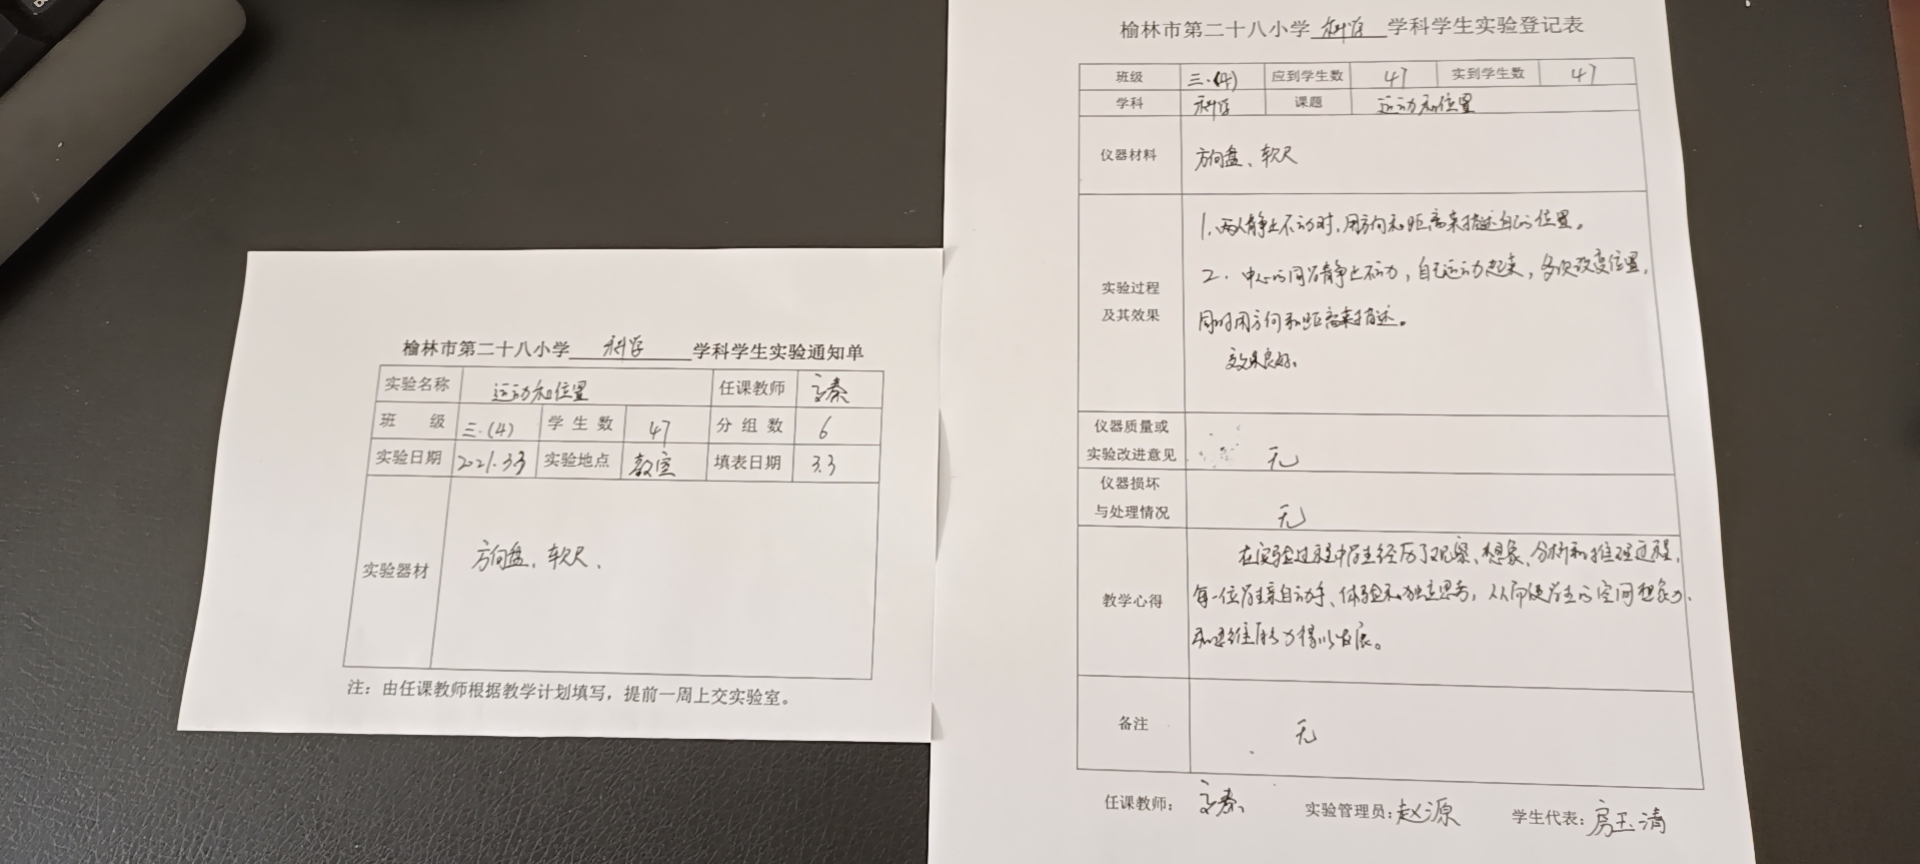 榆林市第二十八小学 科学 学科学生实验通知单
实验名称 运动和位置 任课教师
班 级 三.(4) 学生数 47 分组数 6
实验日期 2021.3.3 实验地点 教室 填表日期 3.3
实验器材 方向盘、软尺、
注：由任课教师根据教学计划填写，提前一周上交实验室。
榆林市第二十八小学 科学 学科学生实验登记表
班级 三.(4) 应到学生数 47 实到学生数 47
学科 科学 课题 运动和位置
仪器材料 方向盘、软尺
实验过程
及其效果
1.两人静止不动时,用方向和距离来描述自己的位置。
2.中心的同学静止不动,自己运动起来,多次改变位置,
同时用方向和距离来描述。
效果良好。
仪器质量或
实验改进意见 无
仪器损坏
与处理情况 无
教学心得
在实验过程中学生经历了观察、想象、分析和推理过程,
每一位学生亲自动手、体验和独立思考,从而使学生的空间想象力
和思维能力得以发展。
备注 无
任课教师： 实验管理员:赵源 学生代表:房玉清